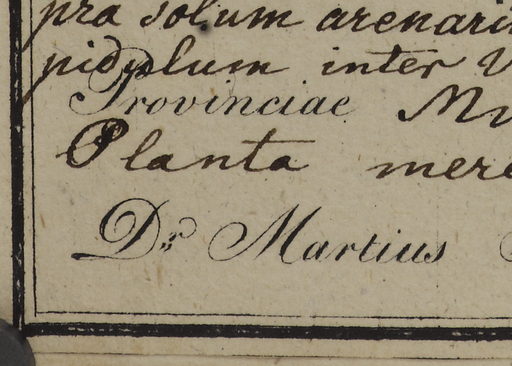 pra solum arenari
pidulum inter V
Provinciae M
Planta mere
Dr. Martius